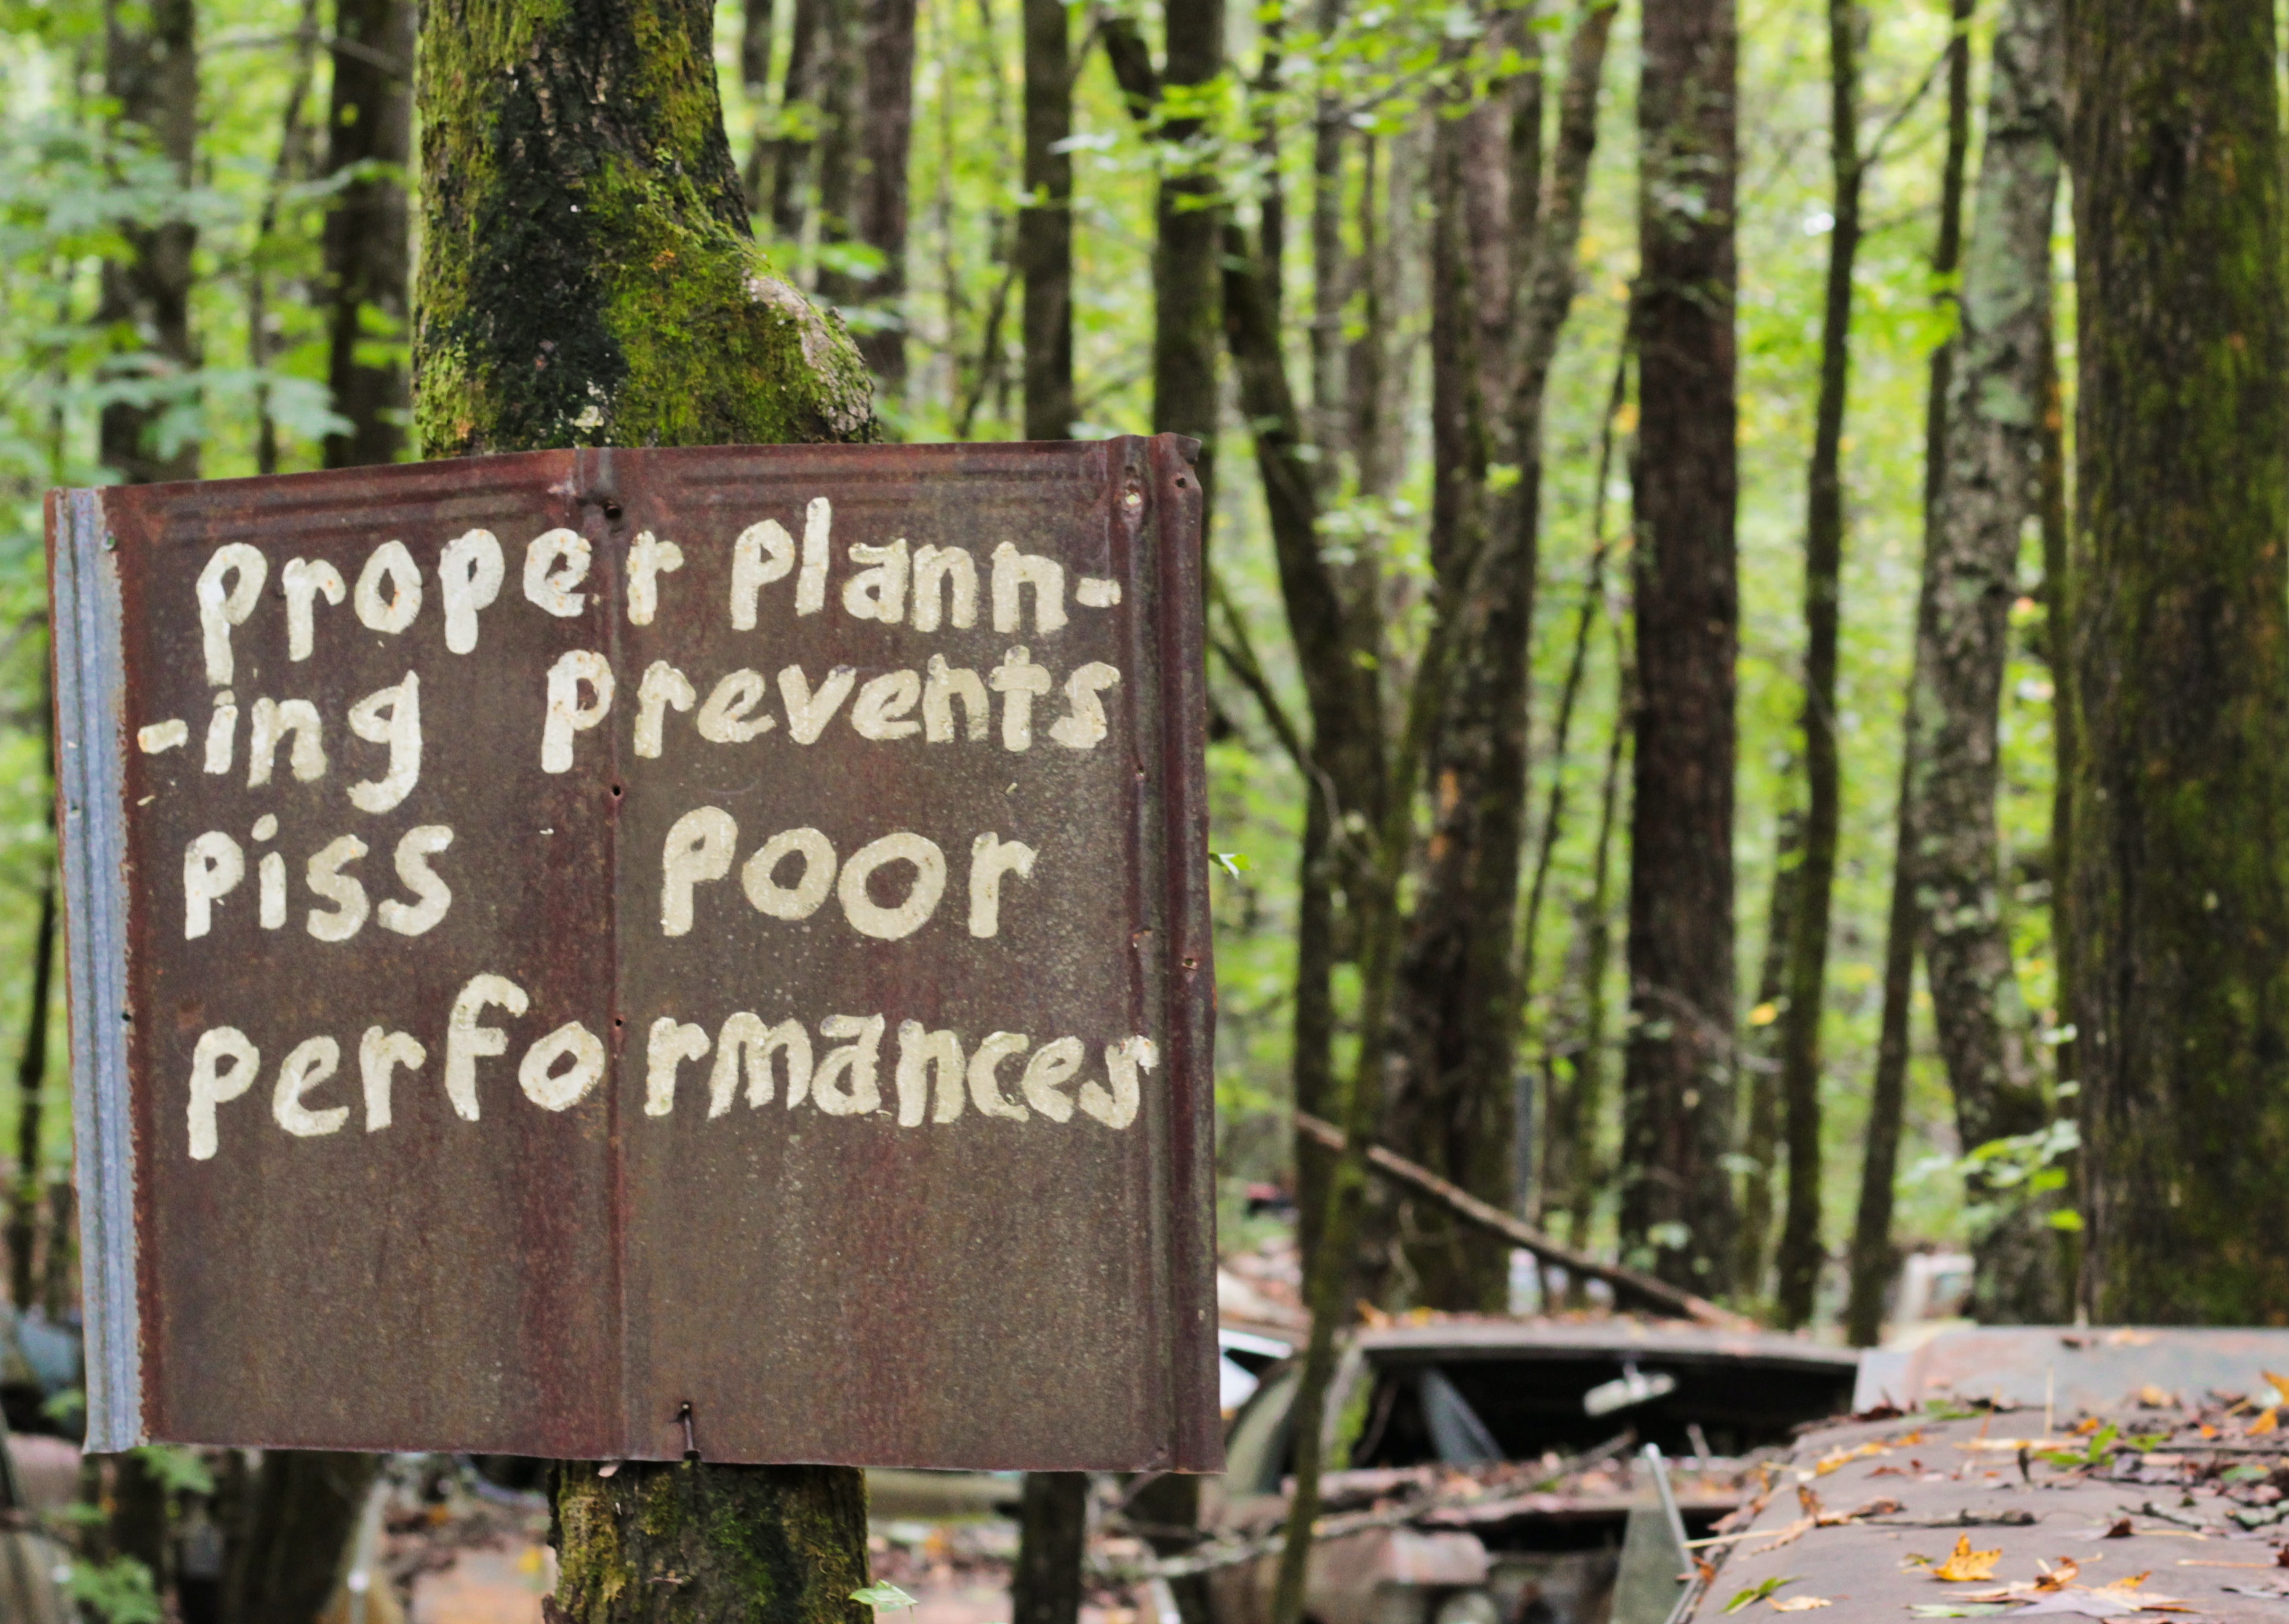 Proper Plann-
-ing Prevents
Piss Poor
Performances